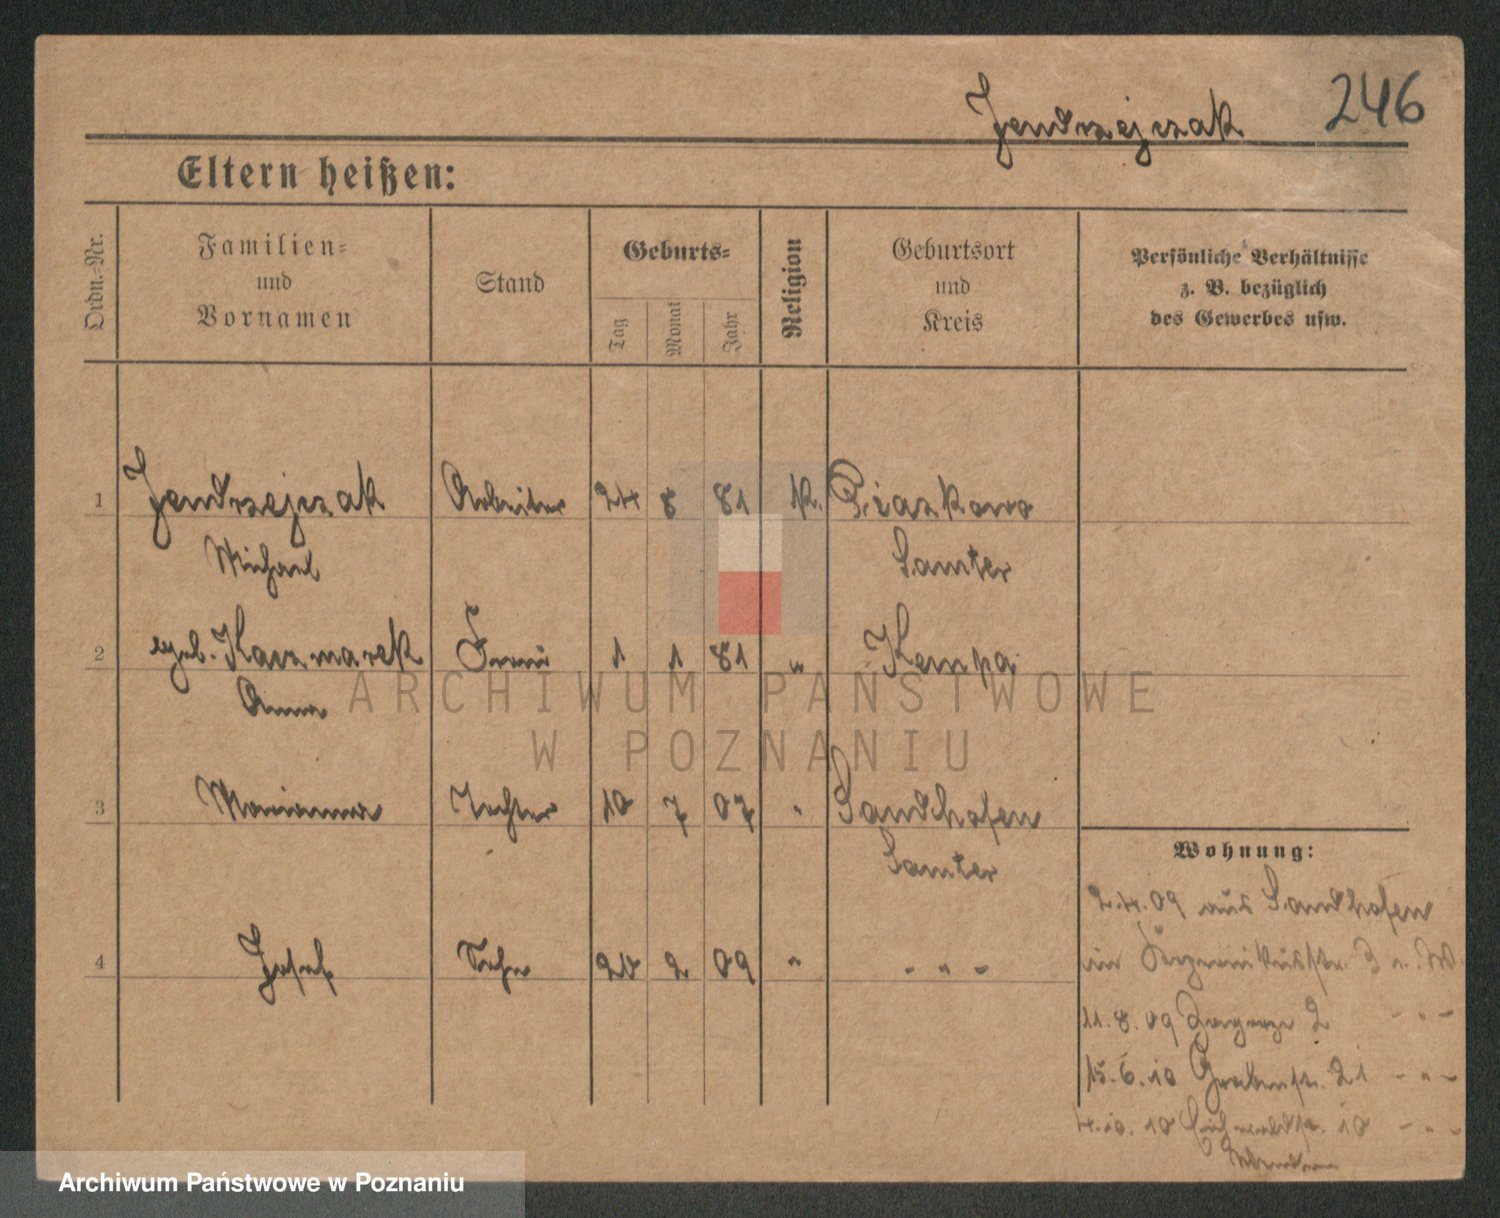 Jendrzejczak 246
Eltern heißen:
Ordn.=Nr.
Familien=
und
Vornamen
Stand
Geburts=
Tag
Monat
Jahr
Religion
Geburtsort
und
Kreis
Persönliche Verhältnisse
z. B. bezüglich
des Gewerbes usw.
1 Jendrzejczak Arbeiter 24 8 81 K. Piaskowo
Michael Samter
2 geb. Kaczmarek Frau 1 1 81 " Kempa
Anna
ARCHIWUM PAŃSTWOWE
W POZNANIU
3 Marianna Tochter 10 7 07 " Sandhofen
Samter
4 Josef Sohn 20 2 09 " - " -
Wohnung:
2.4.09 aus Sandhofen
in 3 a. W.
11.8.09 Zagorze 2 - " -
15.6.10 Grabenstr. 21 - " -
4.10.10 Eichwaldstr. 10 - " -
Archiwum Państwowe w Poznaniu